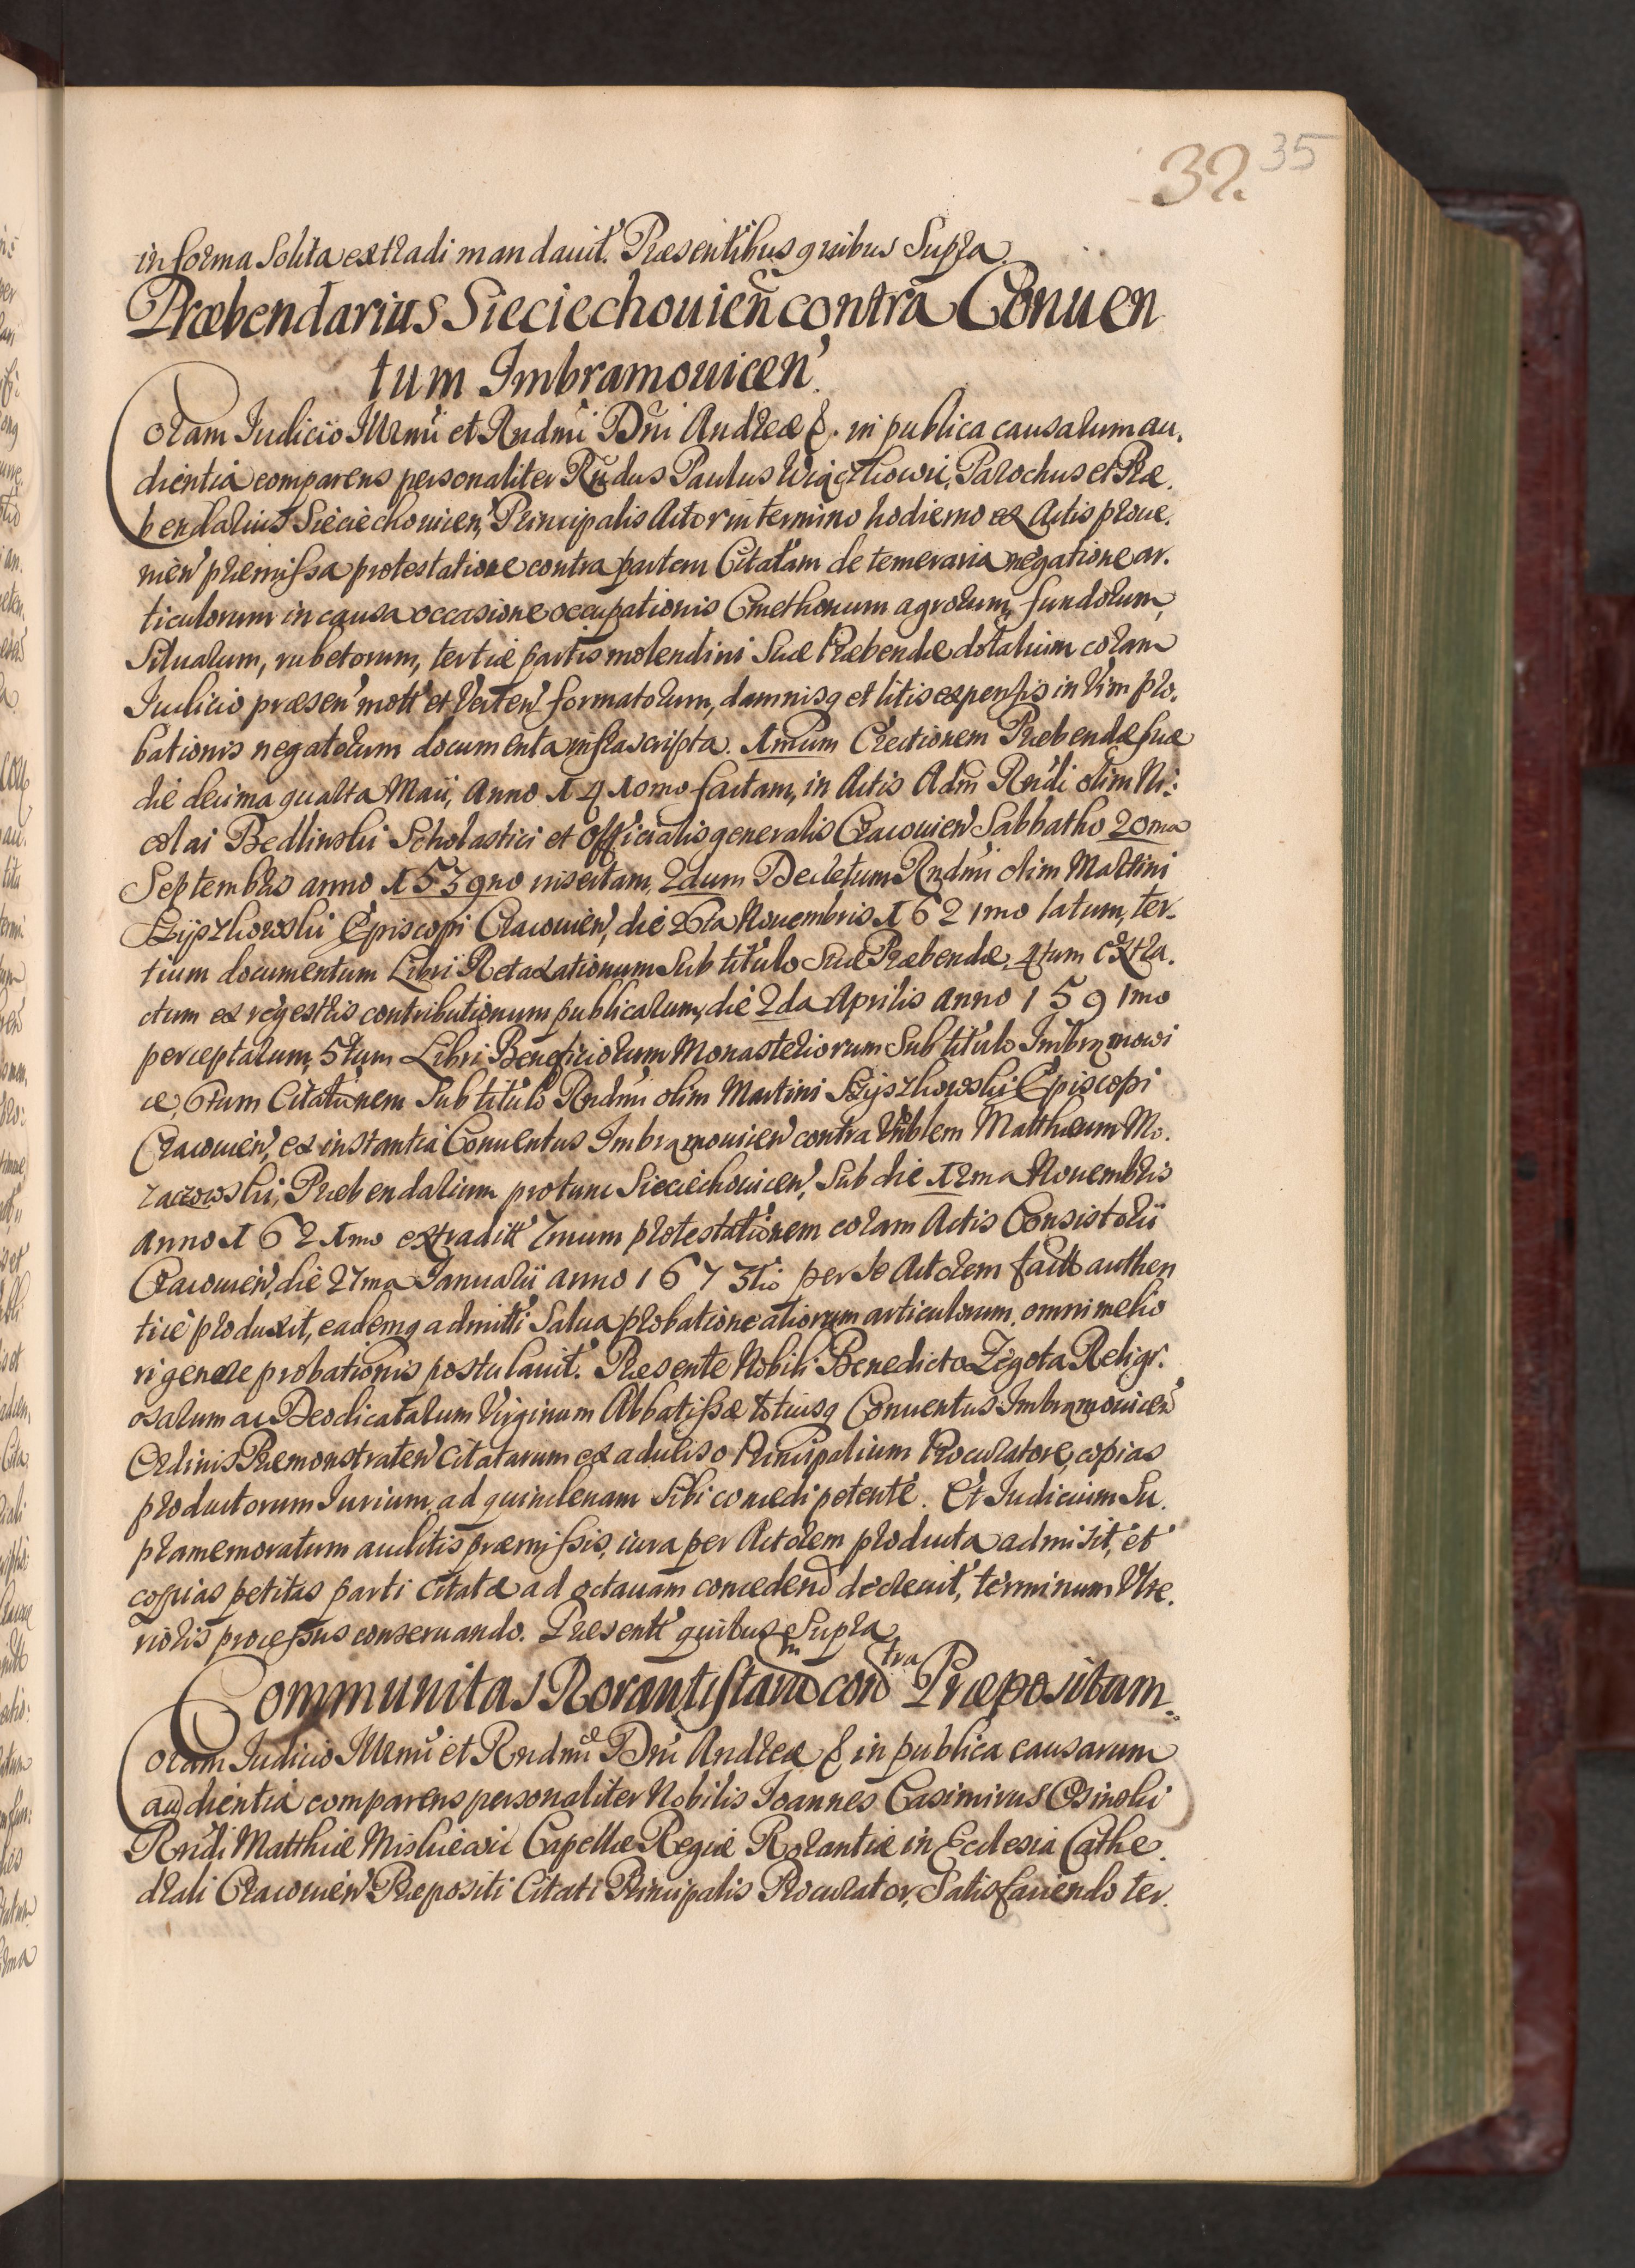 32. 35
in forma solita extradi mandauit. Præsentibus quibus Supra.
Præbendarius Sieciechouien contra Conuen
tum Imbramouicen.
Coram Iudicio Illrmi et Rndmi Dni Andreæ &. in publica causarum au.
dientia comparens personaliter Rndus Paulus Parochus et Præ.
bendarius Sieciechouien, Principalis Actor in termino hodierno ex Actis proue.
nien præmissa protestatione contra partem Citatam de temeraria negatione ar.
ticulorum in causa occasione occupationis Cmethonum agrorum, fundorum,
Siluarum, rubetorum, tertiæ partis molendini Suæ Præbendæ dotalium coram
Iudicio præsen mott et Verten formatorum, damnisq et litis expensis in Vim pro.
bationis negatorum documenta infrascripta. 1mum Erectionem Præbendæ suæ
die decima quarta Maii, Anno 1410mo factam, in Actis Adm Rndi olim Ni:
colai Bedlinski Scholastici et Officialis generalis Cracouien Sabbatho 20ma
Septembris anno 1539no insertam, 2dum Decretum Rndmi olim Martini
Szyszkowski Episcopi Cracouien, die 26ta Nouembris 1621mo latum, ter.
tium documentum Libri Retaxationum Sub titulo Suæ Præbendæ, 4tum Extra.
ctum ex regestris contributionum publicarum, die 2da Aprilis anno 1591mo
perceptarum, 5tum Libri Beneficiorum Monasteriorum Sub titulo Imbramowi
ce, 6tum Citationem Sub titulo Rndmi olim Martini Szyszkowski Episcopi
Cracouien, ex instantia Conuentus Imbramouicen contra Vnblem Matthæum Mo.
raczowski, Præbendarium protunc Sieciechouicen, Sub die 12ma Nouembris
anno 1621mo extraditt 7mum protestationem coram Actis Consistorii
Cracouien, die 27ma Ianuarii anno 1673tio per Se Actorem factt authen
tice produxit, eademq admitti Salua probatione aliorum articulorum, omni melio
ri genere probationis postulauit. Præsente Nobili Benedicto Zegota Religi.
osarum ac Deodicatarum Virginum Abbatissæ totiusq Conuentus Imbramouicen
Ordinis Præmonstraten Citatarum ex aduerso Principalium Procuratore, copias
productorum Iurium, ad quindenam Sibi concedi petente. Et Iudicium Su.
pramemoratum auditis præmissis, iura per Actorem producta admisit, et
copias petitas parti citatæ ad octauam concedend decreuit, terminum Vlte.
rioris processus conseruando. Presentt quibus Supra
Communitas Rorantistarum contra Præpositum.
Coram Iudicio Illrmi et Rndmi Dni Andreæ & in publica causarum
audientia comparens personaliter Nobilis Ioannes Casimirus Osinski
Rndi Matthiæ Miskiewic Capellæ Regiæ Rorantiæ in Ecclesia Cathe.
drali Cracouien Præpositi Citati Principalis Procurator, Satisfaciendo ter.